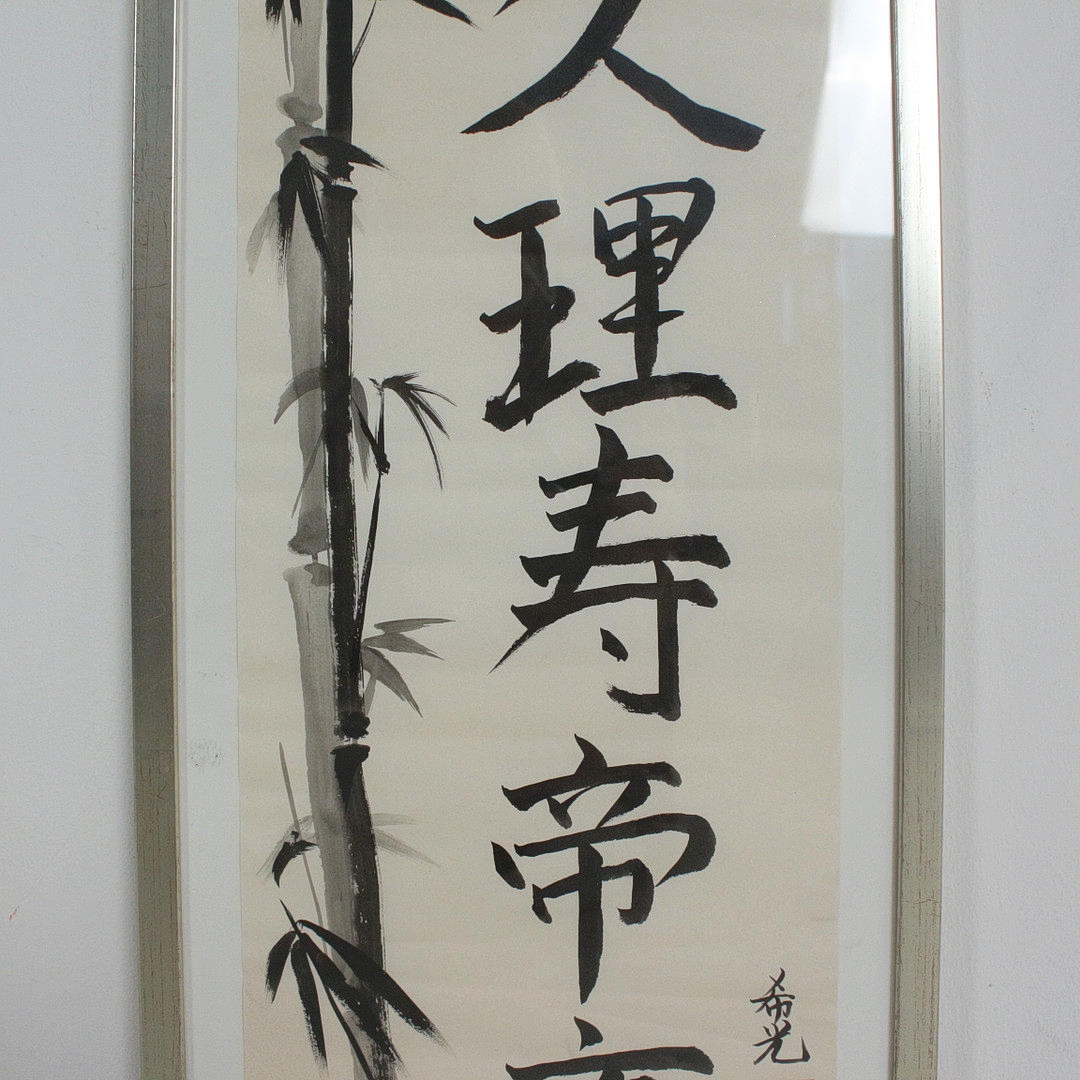 理寿帝
希光